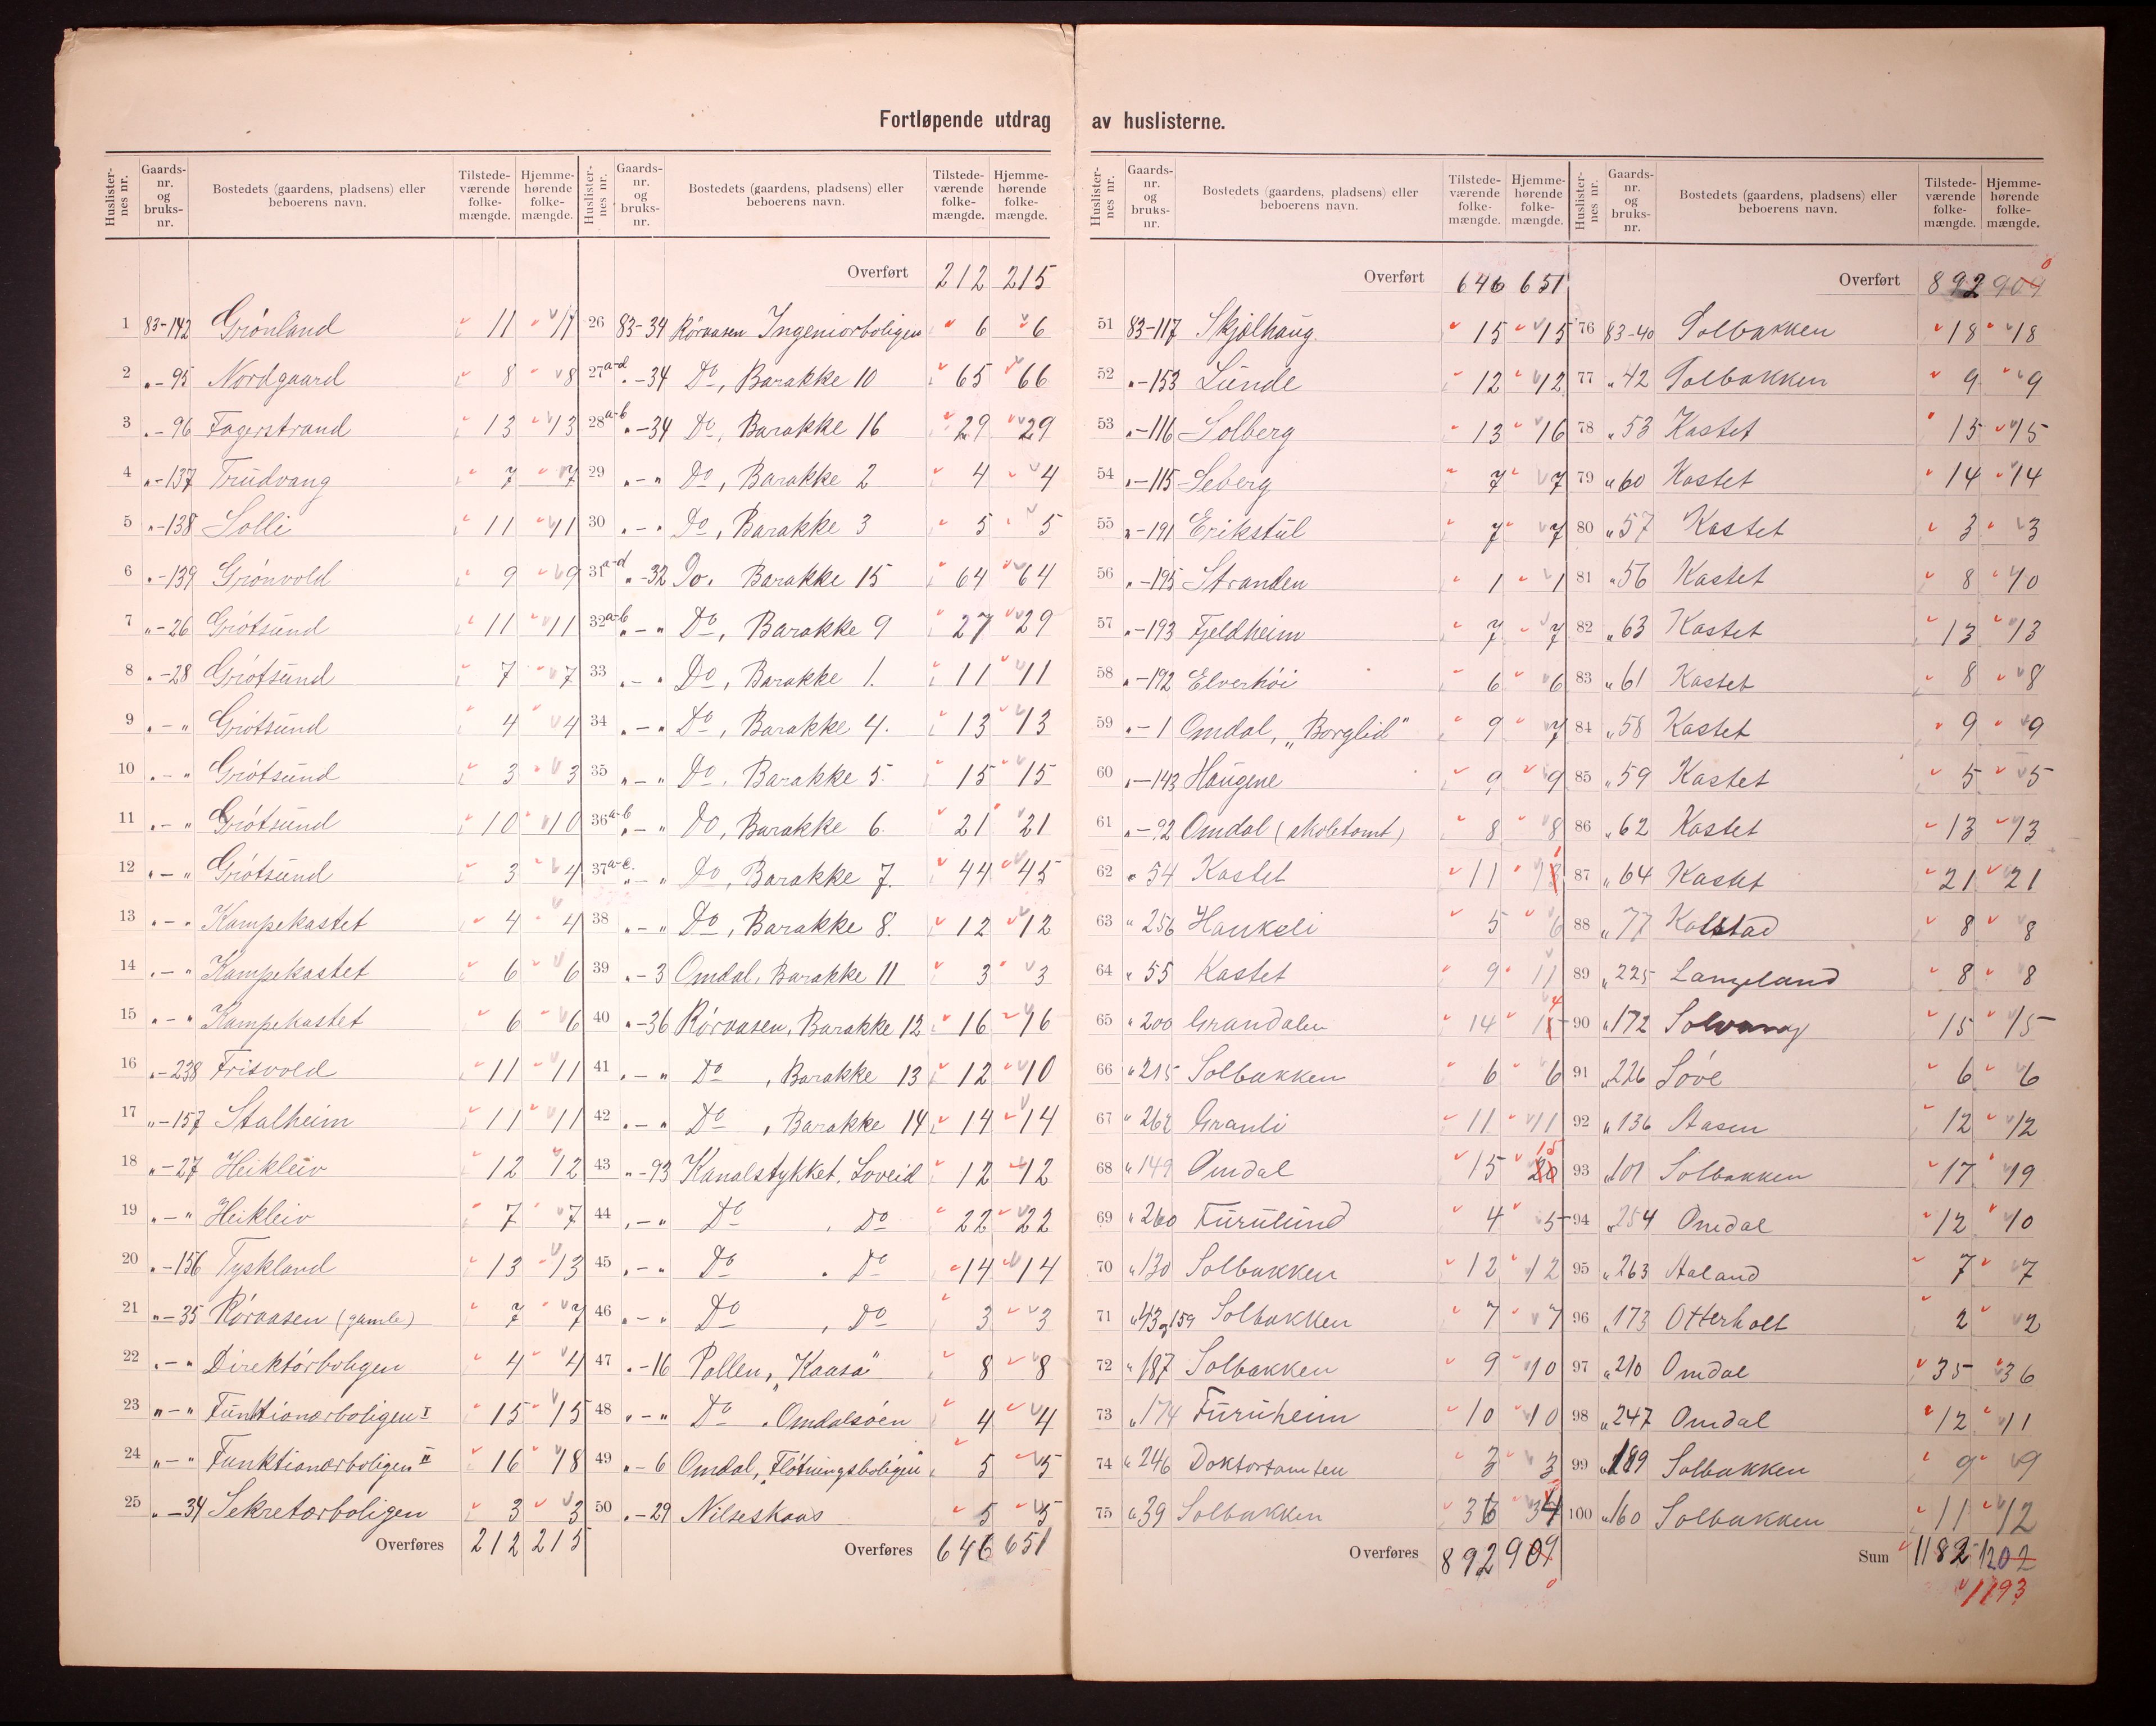 Fortløpende utdrag av huslisterne.
Huslisternes nr. Gaards-nr. og bruks-nr. Bostedets (gaardens, pladsens) eller beboerens navn. Tilstedeværende folkemængde. Hjemmehørende folkemængde.
1 83-142 Grönland 11 11
2 „-95 Nordgaard 8 8
3 „-96 Fagerstrand 13 13
4 „-137 Trudvang 7 7
5 „-138 Solli 11 11
6 „-139 Grönvold 9 9
7 „-26 Grótsund 11 11
8 „-28 Grótsund 7 7
9 „-„ Grótsund 4 4
10 „-„ Grótsund 3 3
11 „-„ Grótsund 10 10
12 „-„ Grótsund 3 4
13 „-„ Kampekastet 4 4
14 „-„ Kampekastet 6 6
15 „-„ Kampekastet 6 6
16 „-238 Frisvold 11 11
17 „-157 Stalheim 11 11
18 „-27 Heikleiv 12 12
19 „-„ Heikleiv 7 7
20 „-156 Tyskland 13 13
21 „-35 Róraasen (gamle) 7 7
22 „-„ Direktórboligen 4 4
23 „-„ Funktionærboligen I 15 15
24 „-„ Funktionærboligen II 16 18
25 „-34 Sekretærboligen 3 3
Overføres 212 215
Huslisternes nr. Gaards-nr. og bruks-nr. Bostedets (gaardens, pladsens) eller beboerens navn. Tilstedeværende folkemængde. Hjemmehørende folkemængde.
Overført 212 215
26 83-34 Róraasen Ingeniorboligen 6 6
27 a-d „-34 Do, Barakke 10 65 66
28 a-b „-34 Do, Barakke 16 29 29
29 „-„ Do, Barakke 2 4 4
30 „-„ Do, Barakke 3 5 5
31 a-d „-32 Do. Barakke 15 64 64
32 a-b „-„ Do, Barakke 9 27 29
33 „-„ Do, Barakke 1. 11 11
34 „-„ Do, Barakke 4. 13 13
35 „-„ Do, Barakke 5. 15 15
36 a-b „-„ Do, Barakke 6. 21 21
37 a-c. „-„ Do, Barakke 7. 44 45
38 „-„ Do, Barakke 8. 12 12
39 „-3 Omdal, Barakke 11 3 3
40 „-36 Rórvasen, Barakke 12 16 16
41 „-„ Do, Barakke 13 12 10
42 „-„ Do, Barakke 14 14 14
43 „-93 Kanalstykket, Loveid 12 12
44 „-„ Do, Do 22 22
45 „-„ Do, Do 14 14
46 „-„ Do, Do 3 3
47 „-16 Pollen, „Kaasa" 8 8
48 „-„ Do „ Omdalsöen 4 4
49 „-6 Omdal, „Flötningsboligen" 5 5
50 „-29 Nilseskaas 5 5
Overføres 646 651
Huslisternes nr. Gaards-nr. og bruks-nr. Bostedets (gaardens, pladsens) eller beboerens navn. Tilstedeværende folkemængde. Hjemmehørende folkemængde.
Overført 646 651
51 83-117 Skjölhaug 15 15
52 „-153 Lunde 12 12
53 „-116 Solberg 13 16
54 „-115 Seberg 7 7
55 „-191 Erikstul 7 7
56 „-195 Stranden 1 1
57 „-193 Fjeldheim 7 7
58 „-192 Elverhöi 6 6
59 „-1 Omdal, „Borglid" 9 7
60 „-143 Haugene 9 9
61 „-92 Omdal (skoletomt) 8 8
62 „ 54 Kastet 11
63 „ 256 Haukeli 5 6
64 „ 55 Kastet 9 11
65 „ 200 Grandalen 14
66 „ 215 Solbakken 6 6
67 „ 262 Granli 11 11
68 „ 149 Omdal 15 20 15
69 „ 260 Furulund 4 5
70 „ 130 Solbakken 12 12
71 „ 43 og 159 Solbakken 7 7
72 „ 187 Solbakken 9 10
73 „ 174 Furuheim 10 10
74 „ 246 Doktortomten 3 3
75 „ 39 Solbakken 36 34
Overføres 892 909 0
Huslisternes nr. Gaards-nr. og bruks-nr. Bostedets (gaardens, pladsens) eller beboerens navn. Tilstedeværende folkemængde. Hjemmehørende folkemængde.
Overført 892 909 0
76 83-40 Solbakken 18 18
77 „ 42 Solbakken 9 9
78 „ 53 Kastet 15 15
79 „ 60 Kastet 14 14
80 „ 57 Kastet 3 3
81 „ 56 Kastet 8 10
82 „ 63 Kastet 13 13
83 „ 61 Kastet 8 8
84 „ 58 Kastet 9 9
85 „ 59 Kastet 5 5
86 „ 62 Kastet 13 13
87 „ 64 Kastet 21 21
88 „ 77 Kolstad 8 8
89 „ 225 Langeland 8 8
90 „ 172 Solvang 15 15
91 „ 226 Löve 6 6
92 „ 136 Aasen 12 12
93 „ 101 Solbakken 17 19
94 „ 254 Omdal 12 10
95 „ 263 Aaland 7 7
96 „ 173 Otterholt 2 2
97 „ 210 Omdal 35 36
98 „ 247 Omdal 12 11
99 „ 189 Solbakken 9 9
100 „ 160 Solbakken 11 12
Sum 1182 1202
1193